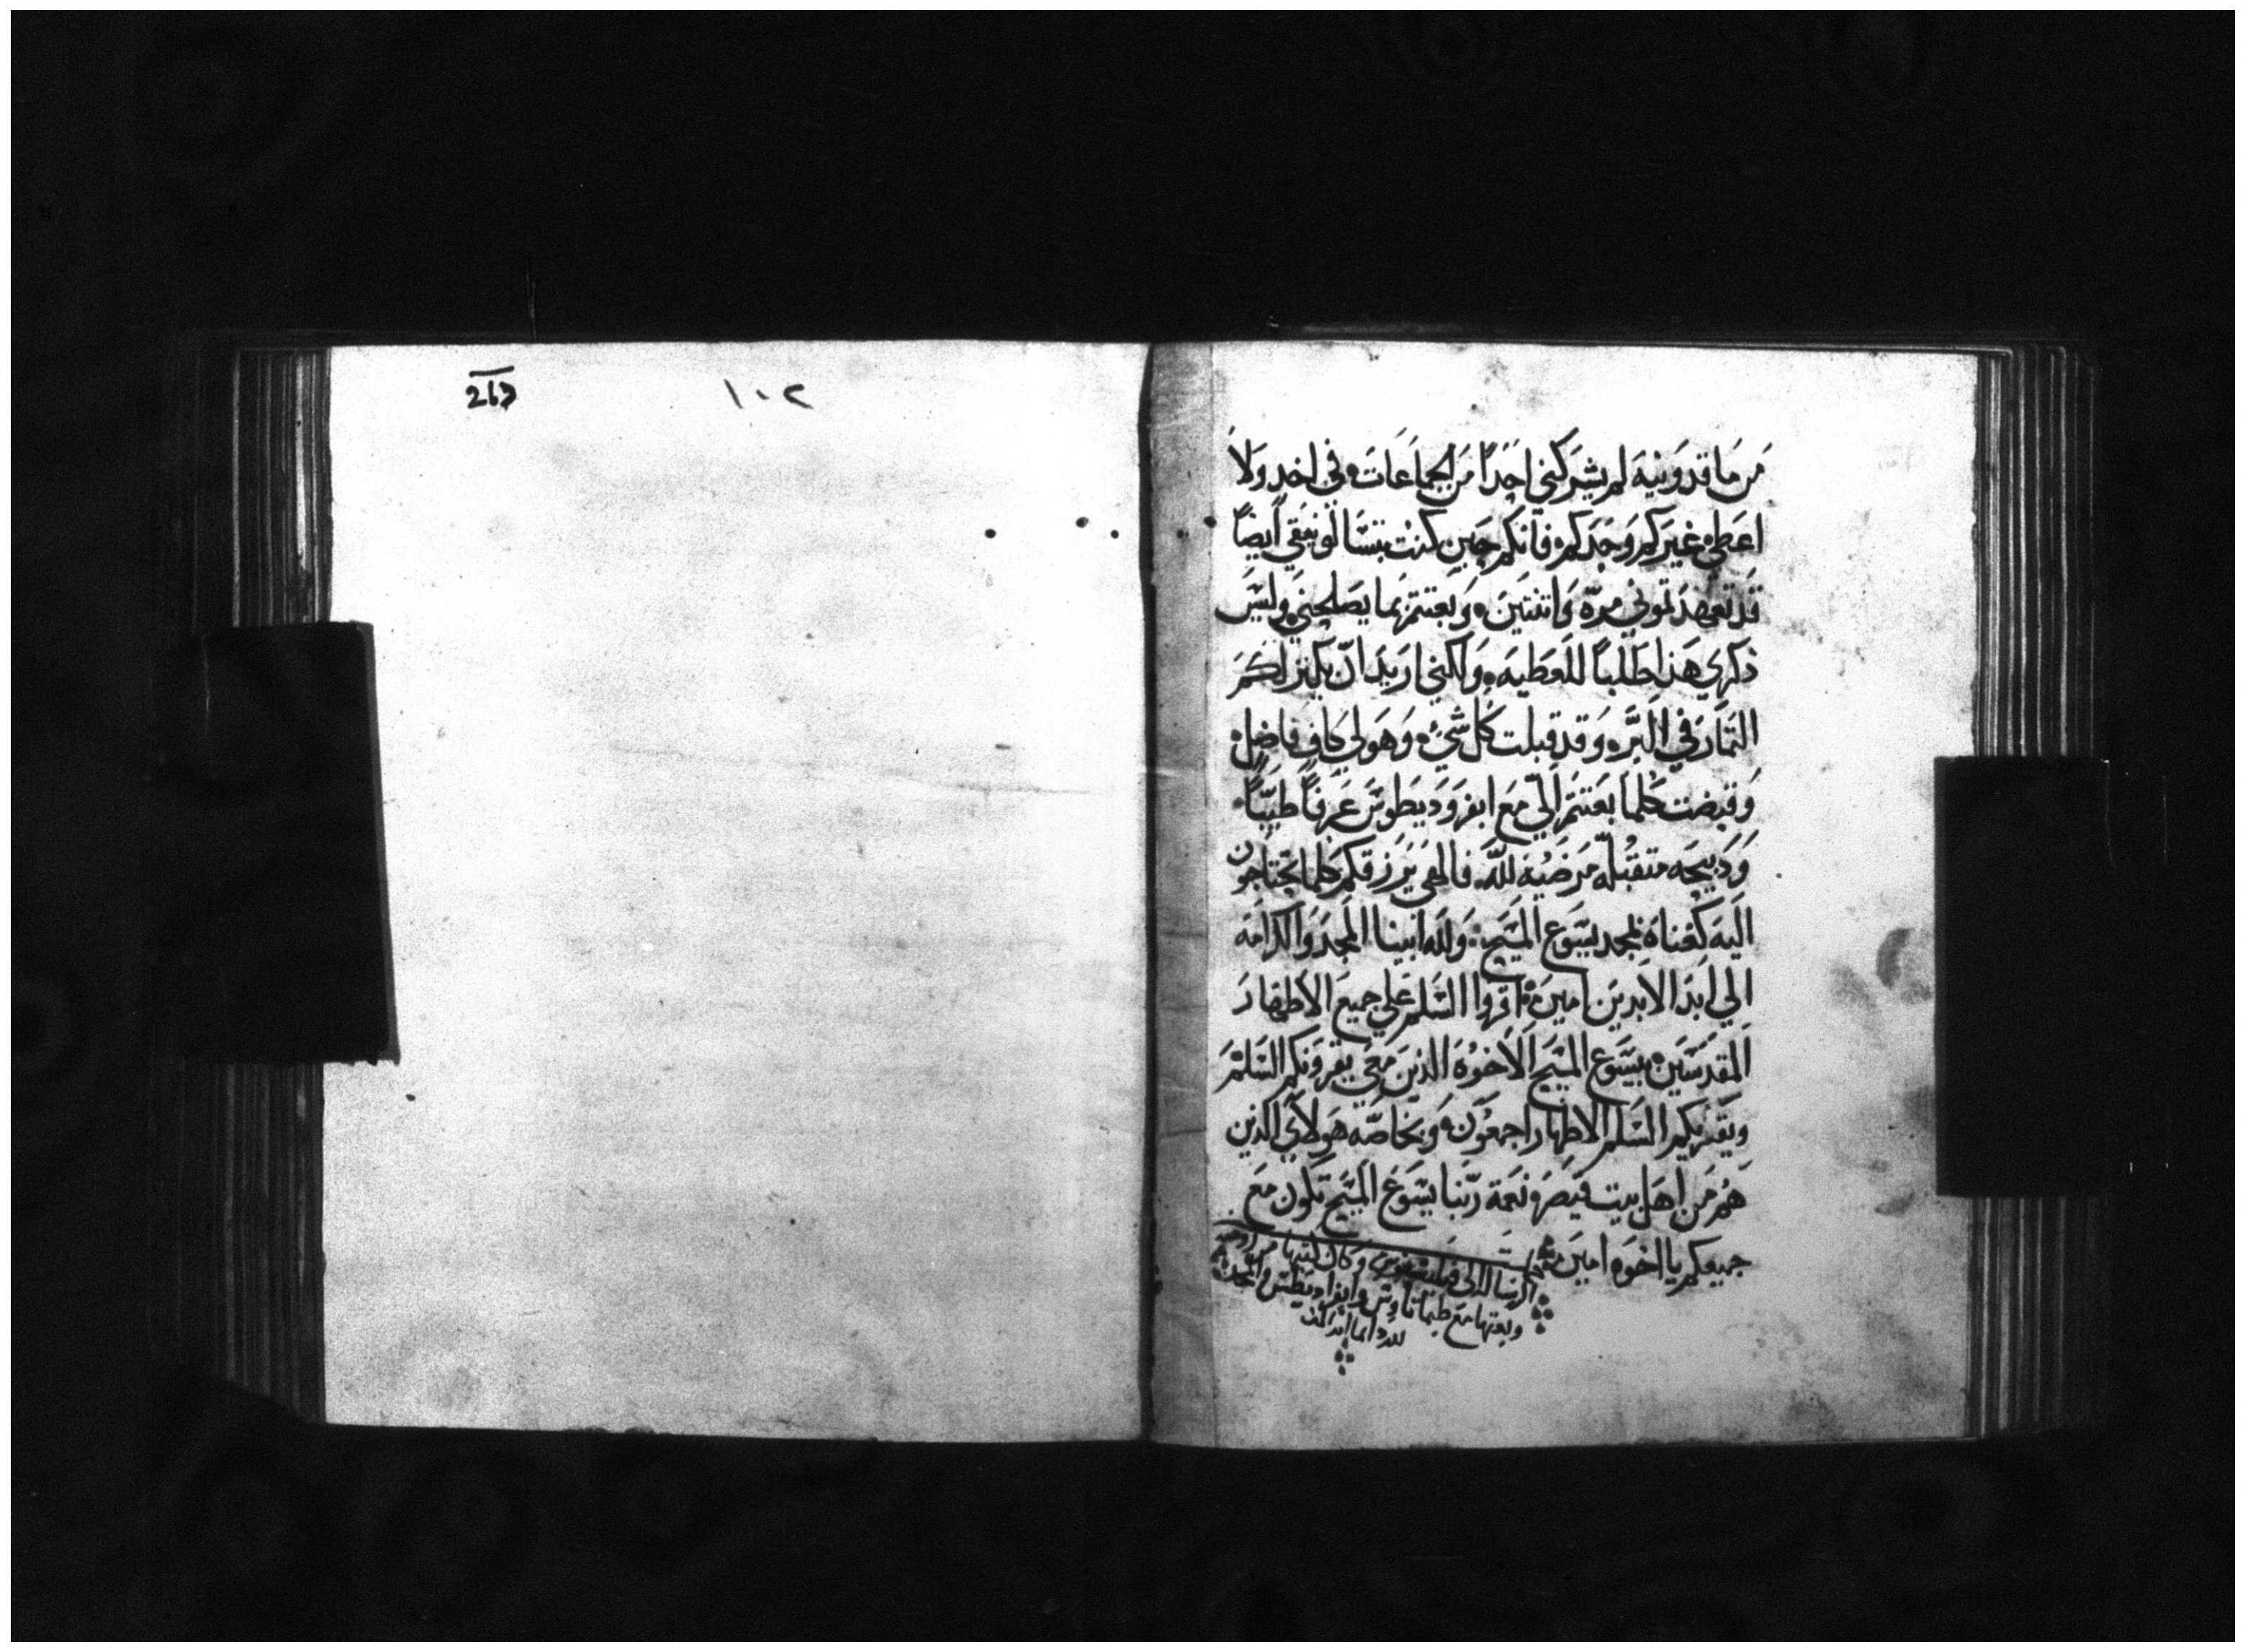 من ماقدونيه لم يشركني احدًا من الجماعات في اخد ولا
اعطي غيركم وحدكم فانكم حين كنت بتسالونيقي ايضًا
قد تعهدتموني مرّه واتنتين وبعتتم بما يصلحني وليس
ذكري هذا طلبًا للعطيه ولكني اريد ان يكتر لكم
التمار في البرّ وقد قبلت كل شيء وهو لي كافي فاضل
وقبضت كلما بعتتم الي مع ابفروديطوس عرفًا طيبًا
ودبيحه متقبله مرضيه لله فالهي يرزقكم كلما تحتاجون
اليه كغناه بمجد يسوع المسيح ولله ابينا المجد والكرامه
الي ابد الابدين امين اقروا السلم علي جميع الاطهار
المقدسين بيسوع المسيح الاخوه الدين معي يقرونكم السلم
ويقريكم السلم الاطهار اجمعون وبخاصّه هولاي الدين
هم من اهل بيت قيصر ونعمة ربّنا يسوع المسيح تكون مع
جميعكم يااخوه امين
الرساله الي وكان كتبها من
وبعتها مع طيماتاوس وابفراديطس والمجد
لله دايما ابدا
١٠٢
263